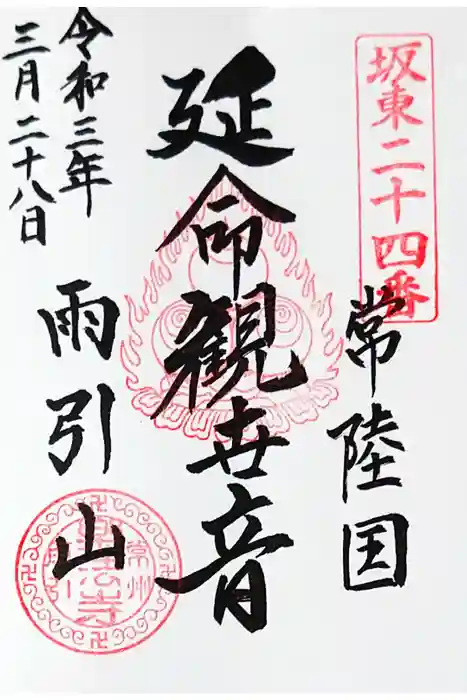 坂東二十四番
常陸国
延命観世音
雨引山
令和三年
三月二十八日
常州